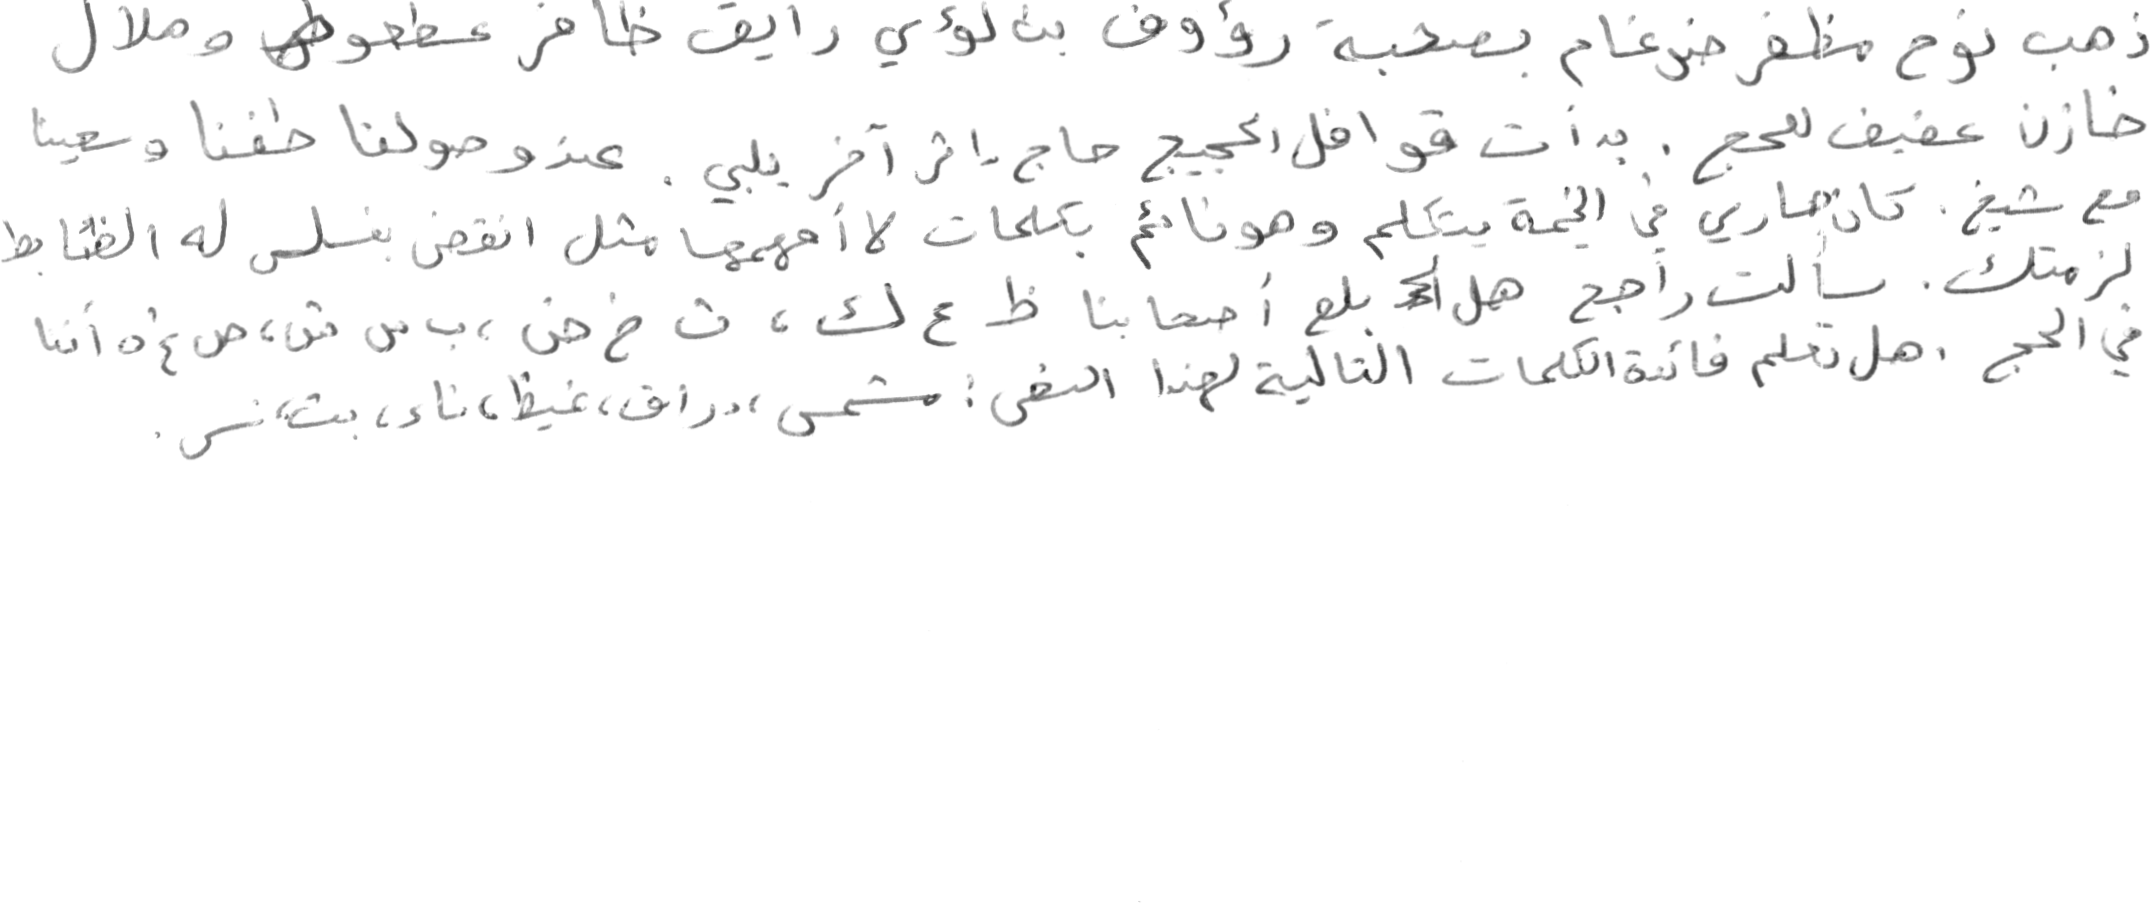 ذهب نوح مظفر ضرغام بصحبة رؤوف بن لؤي رايق ظافر عطعوط وملال
خازن عفيف للحج . بدأت قوافل الحجيج حاج إثر آخر يلبي . عند وصولنا طفنا وسعينا
مع شيخ . كان جاري في الخيمة يتكلم وهو نائم بكلمات لا أفهمها مثل انقض بغلس له الضابط
لزمتك . سألت راجح هل بلع أصحابنا ظ ع ك ، ث خ ض ، ب س ش ، ص غ ه أثنا
في الحج . هل تعلم فائدة الكلمات التالية لهذا النص : مشمس ، دراق ، غيظ ، ناء ، بث ، نس .